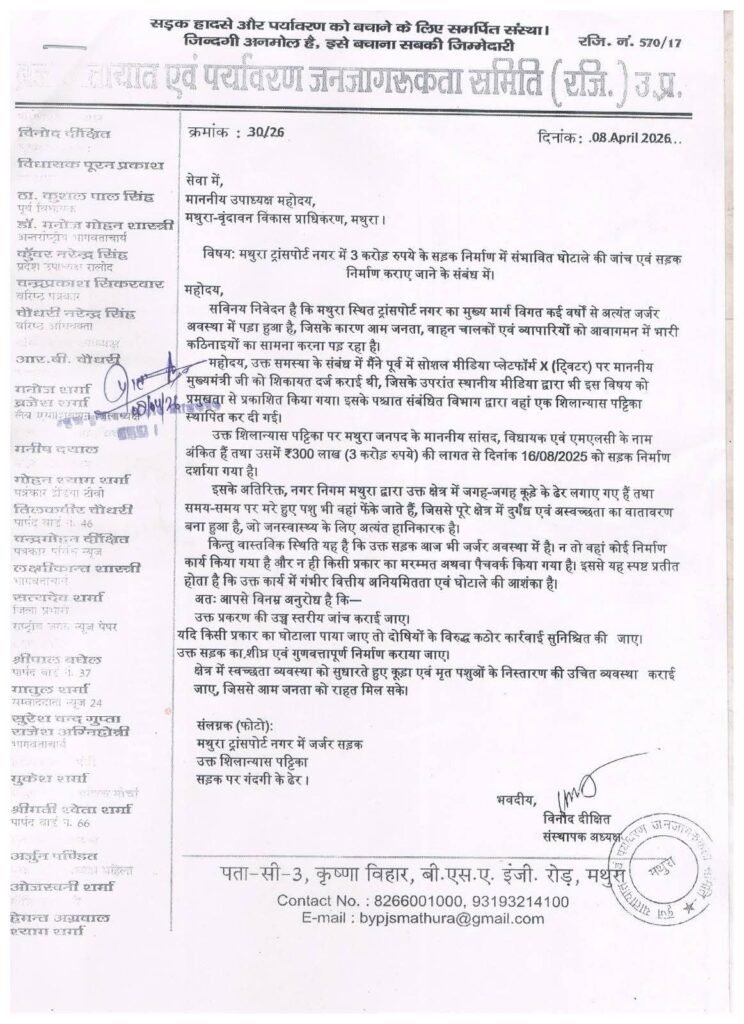 सड़क हादसे और पर्यावरण को बचाने के लिए समर्पित संस्था।
जिन्दगी अनमोल है, इसे बचाना सबकी जिम्मेदारी
रजि. नं. 570/17
यातायात एवं पर्यावरण जनजागरूकता समिति (रजि.) उ.प्र.
क्रमांक : 30/26
दिनांक: .08 April 2026...
विनोद दीक्षित
विधायक पूरन प्रकाश
ठा. कुशल पाल सिंह
पूर्व विधायक
डॉ. मनोज मोहन शास्त्री
अन्तर्राष्ट्रीय भागवताचार्य
कुँवर नरेन्द्र सिंह
प्रदेश उपाध्यक्ष रालोद
चन्द्रप्रकाश सिकरवार
वरिष्ठ पत्रकार
चौधरी नरेन्द्र सिंह
वरिष्ठ अधिवक्ता
आर.बी. चौधरी
मनोज शर्मा
ब्रजेश शर्मा
मनीष दयाल
मोहन श्याम शर्मा
पत्रकार इंडिया टीवी
तिलकवीर चौधरी
पार्षद वार्ड नं. 46
चन्द्रमोहन दीक्षित
लक्ष्मीकान्त शास्त्री
भागवताचार्य
सत्यदेव शर्मा
जिला प्रभारी
श्रीपाल बघेल
पार्षद वार्ड नं. 37
सुरेश चन्द गुप्ता
राजेश अग्निहोत्री
भागवताचार्य
मुकेश शर्मा
श्रीमती श्वेता शर्मा
पार्षद वार्ड नं. 66
अर्जुन पण्डित
ओजस्वनी शर्मा
हेमन्त अग्रवाल
श्याम शर्मा
सेवा में,
माननीय उपाध्यक्ष महोदय,
मथुरा-वृंदावन विकास प्राधिकरण, मथुरा।
विषय: मथुरा ट्रांसपोर्ट नगर में 3 करोड़ रुपये के सड़क निर्माण में संभावित घोटाले की जांच एवं सड़क
निर्माण कराए जाने के संबंध में।
महोदय,
सविनय निवेदन है कि मथुरा स्थित ट्रांसपोर्ट नगर का मुख्य मार्ग विगत कई वर्षों से अत्यंत जर्जर
अवस्था में पड़ा हुआ है, जिसके कारण आम जनता, वाहन चालकों एवं व्यापारियों को आवागमन में भारी
कठिनाइयों का सामना करना पड़ रहा है।
महोदय, उक्त समस्या के संबंध में मैंने पूर्व में सोशल मीडिया प्लेटफॉर्म X (ट्विटर) पर माननीय
मुख्यमंत्री जी को शिकायत दर्ज कराई थी, जिसके उपरांत स्थानीय मीडिया द्वारा भी इस विषय को
प्रमुखता से प्रकाशित किया गया। इसके पश्चात संबंधित विभाग द्वारा वहां एक शिलान्यास पट्टिका
स्थापित कर दी गई।
उक्त शिलान्यास पट्टिका पर मथुरा जनपद के माननीय सांसद, विधायक एवं एमएलसी के नाम
अंकित हैं तथा उसमें ₹300 लाख (3 करोड़ रुपये) की लागत से दिनांक 16/08/2025 को सड़क निर्माण
दर्शाया गया है।
इसके अतिरिक्त, नगर निगम मथुरा द्वारा उक्त क्षेत्र में जगह-जगह कूड़े के ढेर लगाए गए हैं तथा
समय-समय पर मरे हुए पशु भी वहां फेंके जाते हैं, जिससे पूरे क्षेत्र में दुर्गंध एवं अस्वच्छता का वातावरण
बना हुआ है, जो जनस्वास्थ्य के लिए अत्यंत हानिकारक है।
किन्तु वास्तविक स्थिति यह है कि उक्त सड़क आज भी जर्जर अवस्था में है। न तो वहां कोई निर्माण
कार्य किया गया है और न ही किसी प्रकार का मरम्मत अथवा पैचवर्क किया गया है। इससे यह स्पष्ट प्रतीत
होता है कि उक्त कार्य में गंभीर वित्तीय अनियमितता एवं घोटाले की आशंका है।
अतः आपसे विनम्र अनुरोध है कि—
उक्त प्रकरण की उच्च स्तरीय जांच कराई जाए।
यदि किसी प्रकार का घोटाला पाया जाए तो दोषियों के विरुद्ध कठोर कार्रवाई सुनिश्चित की जाए।
उक्त सड़क का.शीघ्र एवं गुणवत्तापूर्ण निर्माण कराया जाए।
क्षेत्र में स्वच्छता व्यवस्था को सुधारते हुए कूड़ा एवं मृत पशुओं के निस्तारण की उचित व्यवस्था कराई
जाए, जिससे आम जनता को राहत मिल सके।
संलग्नक (फोटो):
मथुरा ट्रांसपोर्ट नगर में जर्जर सड़क
उक्त शिलान्यास पट्टिका
सड़क पर गंदगी के ढेर।
भवदीय,
विनोद दीक्षित
संस्थापक अध्यक्ष
पता-सी-3, कृष्णा विहार, बी.एस.ए. इंजी. रोड़, मथुरा
Contact No. : 8266001000, 93193214100
E-mail : bypjsmathura@gmail.com